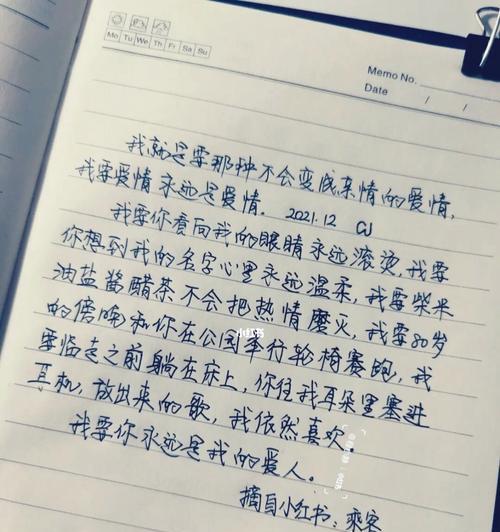 Mo Tu We Th Fr Sa Su
Memo No.
Date / /
我就是要那种不会变成亲情的爱情,
我要爱情永远是爱情. 2021.12
我要你看向我的眼睛永远滚烫,我要
你想到我的名字心里永远温柔,我要柴米
油盐酱醋茶不会把热情磨灭,我要80岁
的傍晚和你在公园举行轮椅赛跑,我
要临走之前躺在床上,你往我耳朵里塞进
耳机,放出来的歌,我依然喜欢.
我要你永远是我的爱人。
摘自小红书:乘客
小红书